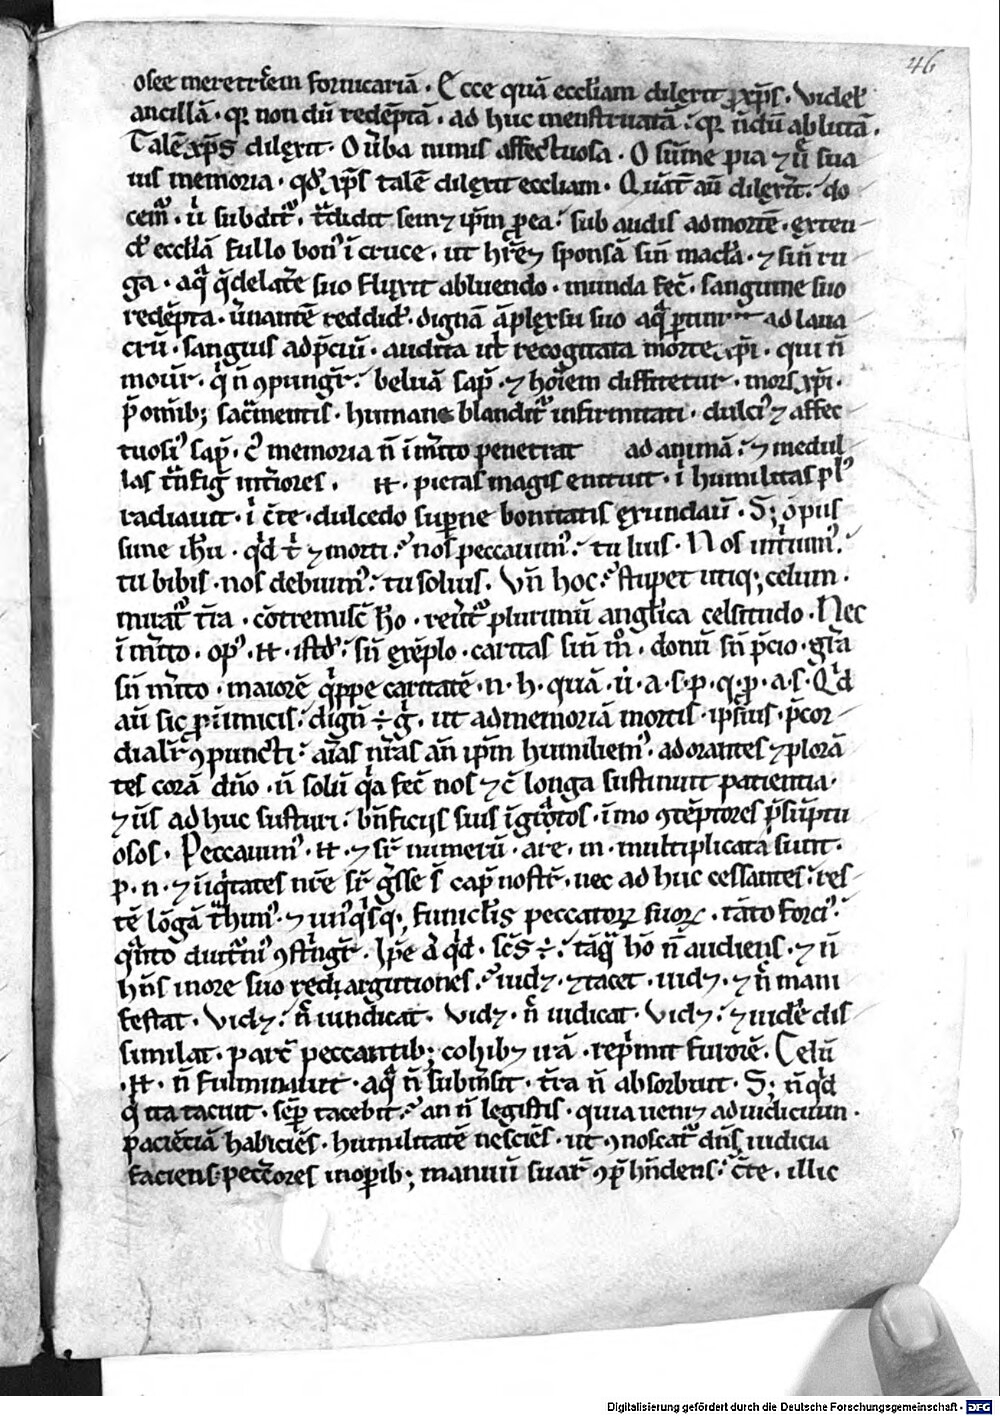 46
osee meretˀcem fornicariā · Ecce quā eccłiam dilexit xp̄s · videł
ancillā · qꝛ non dū redēptā · ad huc menstruatā · qꝛ n̄dū ablutā ·
Talē xp̄s dilexit · O ūba nimis affectuosa · O sūme pia ⁊ ū sua
uis memoria · qd xp̄s talē dilexit eccłiam · Quāt aū dilexit · do
cem · subdit · tdidit sem ⁊ ip̄m ꝓ ea · sub audis ad mortē · exten
eccłiā fullo bon ī cruce · ut spōsā sin macła · ⁊ sin ru
ga · aq̄ de lat̄e suo fluxit abluendo · munda fec̄ · sanguine suo
redēpta · reddid · dignā āplexu suo aq̄ ad laua
crū · sanguis ad p̄ciū · audita recogitata morte xp̄i · qui n̄
mouet · q̄ n̄ ꝯpungit · beluā sap̄ · ⁊ hoīem diffitetur · mors xp̄i ·
p̄ omīb; sac̄mentis · humane blandit infirmitati · dulci ⁊ affec
tuosi sap̄ · memoria n̄ īm̄ito penetrat ad animā · ⁊ medul
las int̄iores · H · pietas magis enituit · ī humilitas pl
radiauit · ī c̄te · dulcedo sup̄ne bonitatis exundau · S; o pijs
sime ih̄u · qd t ⁊ morti · nos peccauim · tu luis · Nos
tu bibis · nos debuim · tu soluis · Vn̄ hoc · stupet utiq; celum ·
mirat t̄ra · cōtremisc̄ ho · reūet plurimū angłica celsitudo · Nec
īm̄ito · op · H · istd · sn̄ exēplo · caritas sin m̊ · donū sn̄ p̄cio · gr̄a
sn̄ m̄ito · maiorē q̄ppe caritatē · n · h · quā · u · a · s · p · q · p · a · s · Qd
aū sic ꝓ inimicis · dignū ÷ g̊ · ut ad memoriā mortis · ipsius · p̄cor
dialit ꝯpuncti · aīas nr̄as an̄ ip̄m humiliem · adorantes ⁊ plorā
tes corā dn̄o · n̄ solū q̄a fec̄ nos ⁊ c̄ longa sustinuit patientia ·
⁊ ūs ad huc sustinı · bn̄ficijs suis īgratos · īmo ꝯtēptores p̄sūptu
osos · Peccauim · H · ⁊ sr̄ numerū · are · m · multiplicata sunt ·
p · n · ⁊ iniq̄tates nr̄e sr̄ g̊sse s̄ cap̄ nostr̄ · nec ad huc cessantes · res
tē lōgā t̄him · ⁊ un q̄sq; funicłis peccatoꝝ suoꝝ · tāto forci
q̄nto diutn ꝯst̄ngit · Ip̄e qd · sc̄s ÷ · tāq̄ ho n̄ audiens · ⁊ n̄
hn̄s in ore suo redargutiones · uidꝫ · ⁊ tacet · uidꝫ · ⁊ n̄ mani
festat · vidꝫ · n̄ uindicat · vidꝫ · n̄ iudicat · vidꝫ · ⁊ dis
similat · parc̄ peccantib; cohibꝫ irā · rep̄mit furorē · Celū
· H · n̄ fulminauit · aq̄ n̄ subm̄sit · t̄ra n̄ absorbuit · S; n̄qd
q̄ ita tacuit · sēp̄ tacebit · an n̄ legistis · quia ueniꝫ ad iudicium ·
paciēciā habiciēs · humilitatē nesciēs · ut ꝯnoscat dn̄s iudicia
faciens · pecc̄ores inopib; manuū suaꝝ ꝯp̄hn̄dens · c̄te · illic
Digitalisierung gefördert durch die Deutsche Forschungsgemeinschaft · DFG